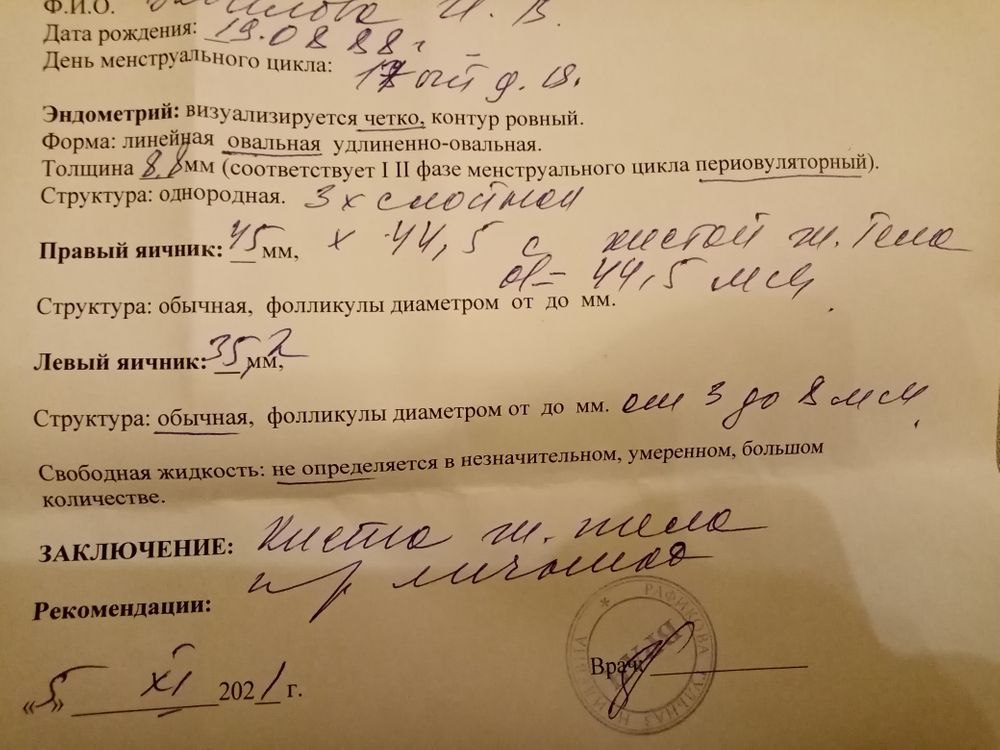 Ф.И.О. И. В.
Дата рождения: 19.08 88 г
День менструального цикла: 17 ый д. ц.
Эндометрий: визуализируется четко, контур ровный.
Форма: линейная овальная удлиненно-овальная.
Толщина 8,8 мм (соответствует I II фазе менструального цикла периовуляторный).
Структура: однородная. 3х слойной
Правый яичник: 45 мм, х 44,5 с кистой ж. тела
d= 44,5 мм
Структура: обычная, фолликулы диаметром от до мм.
Левый яичник: 35,2 мм,
Структура: обычная, фолликулы диаметром от до мм. от 3 до 8 мм
Свободная жидкость: не определяется в незначительном, умеренном, большом
количестве.
ЗАКЛЮЧЕНИЕ: Киста ж. тела
пр яичника
Рекомендации:
РАФИКОВА ВРАЧ
Врач:
«5» XI 2021 г.